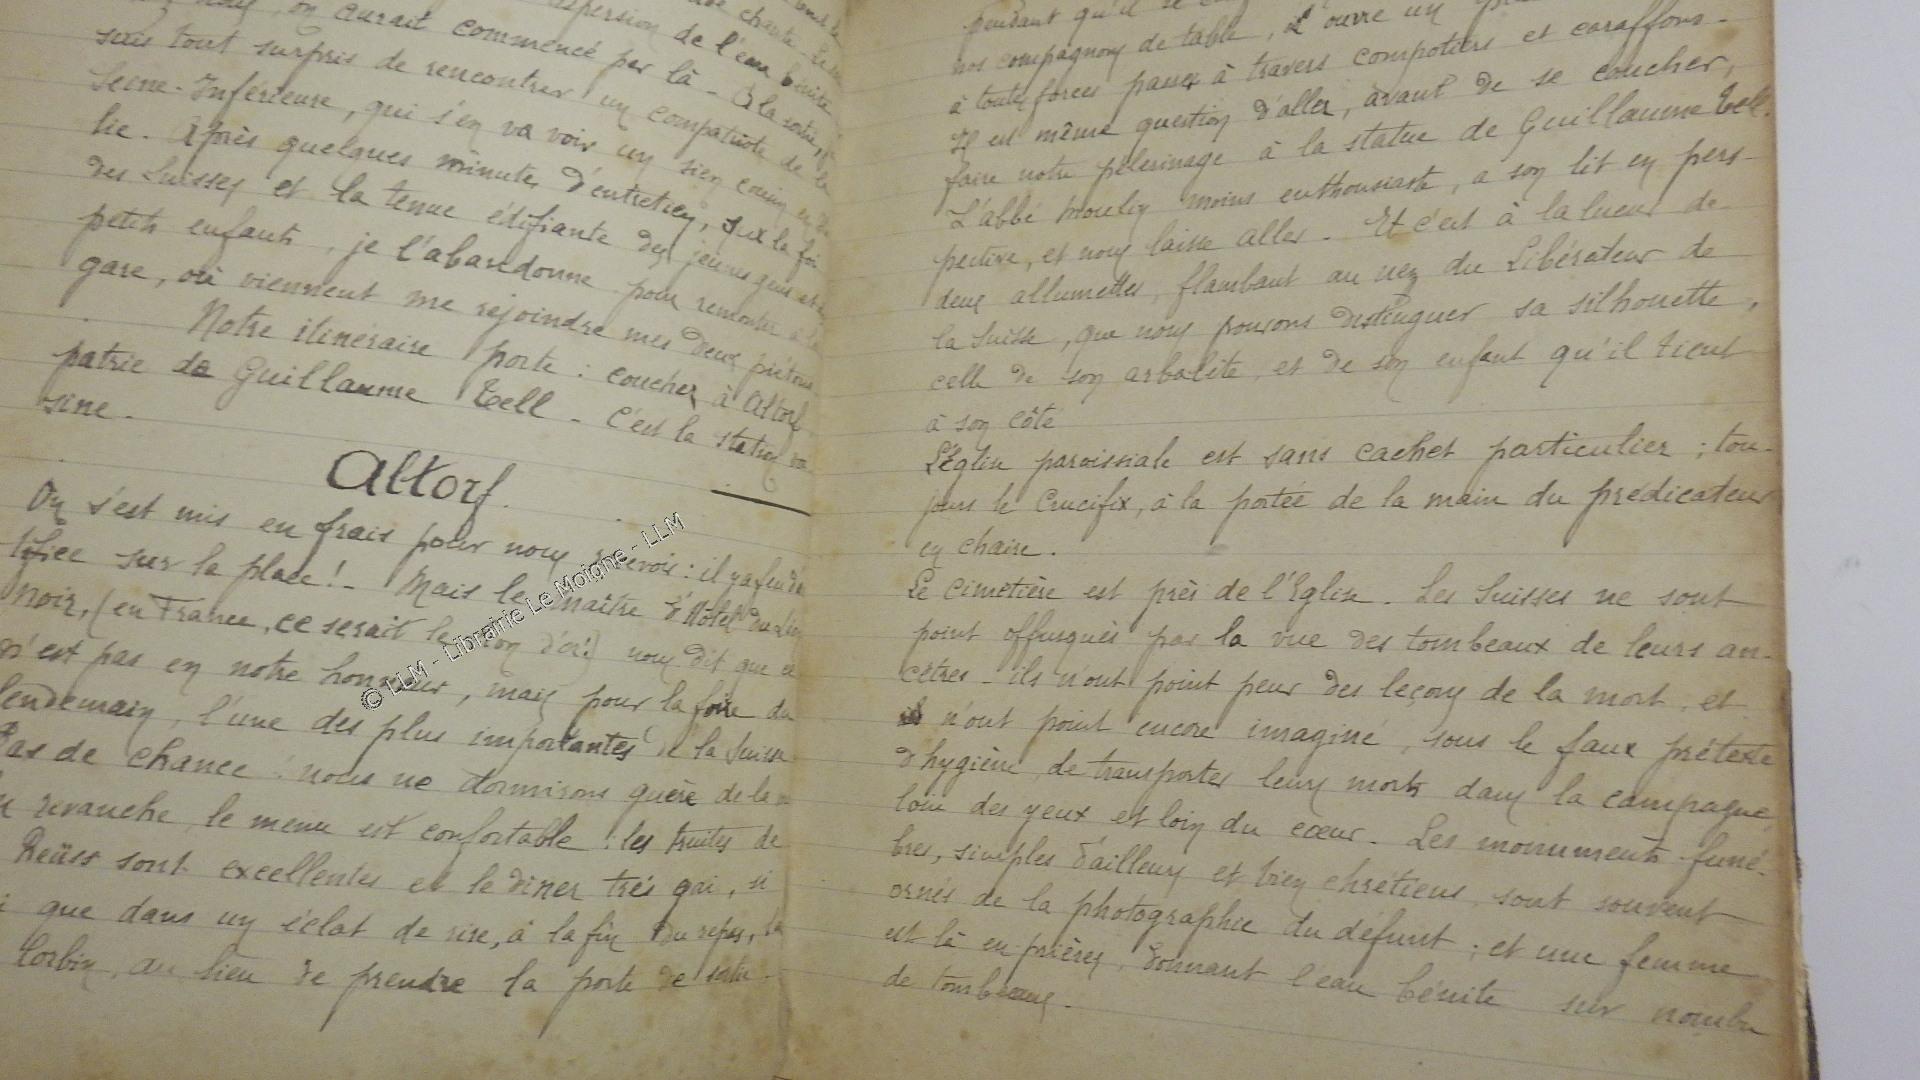 nous, on aurait commencé par là - A la sortie, je
suis tout surpris de rencontrer un compatriote de la
Seine-Inférieure, qui s'en va voir un sien cousin en
lie. Après quelques minutes d'entretien, sur la foi
des Suisses et la tenue édifiante des jeunes gens et
petits enfants, je l'abandonne pour remonter à la
gare, où viennent me rejoindre mes deux piétons.
Notre itinéraire porte : coucher à Altorf
patrie de Guillaume Tell - C'est la station
sine.
Altorf.
On s'est mis en frais pour nous recevoir : il y a feu d'
tifice sur la place ! - Mais le maître d'Hôtel du Lion
noir, (en France, ce serait le lion d'or !) nous dit que ce
n'est pas en notre honneur, mais pour la foire du
lendemain, l'une des plus importantes de la Suisse
Pas de chance : nous ne dormirons guère de la
revanche, le menu est confortable : les truites de
Reüss sont excellentes et le dîner très gai, si
que dans un éclat de rire, à la fin du repas,
Corbin, au lieu de prendre la porte de sortie
pendant qu'il se
nos compagnons de table, l'ouvre un
à toutes forces passer à travers compotiers et caraffons -
Il est même question d'aller, avant de se coucher,
faire notre pèlerinage à la statue de Guillaume Tell.
L'abbé Moulin moins enthousiaste, a son lit en pers-
pective, et nous laisse aller - Et c'est à la lueur de
deux allumettes, flambant au nez du Libérateur de
la Suisse, que nous pouvons distinguer sa silhouette,
celle de son arbalète, et de son enfant qu'il tient
à son côté
L'Eglise paroissiale est sans cachet particulier ; tou-
jours le Crucifix, à la portée de la main du prédicateur
en chaire.
Le cimetière est près de l'Eglise - Les Suisses ne sont
point offusqués par la vue des tombeaux de leurs an-
cêtres - ils n'ont point peur des leçons de la mort, et
n'ont point encore imaginé, sous le faux prétexte
d'hygiène, de transporter leurs morts dans la campagne,
loin des yeux et loin du cœur. Les monuments funè-
bres, simples d'ailleurs et bien chrétiens, sont souvent
ornés de la photographie du défunt ; et une femme
est là en prières, donnant l'eau bénite sur nombre
de tombeaux.
© LLM - Librairie Le Moigne - LLM